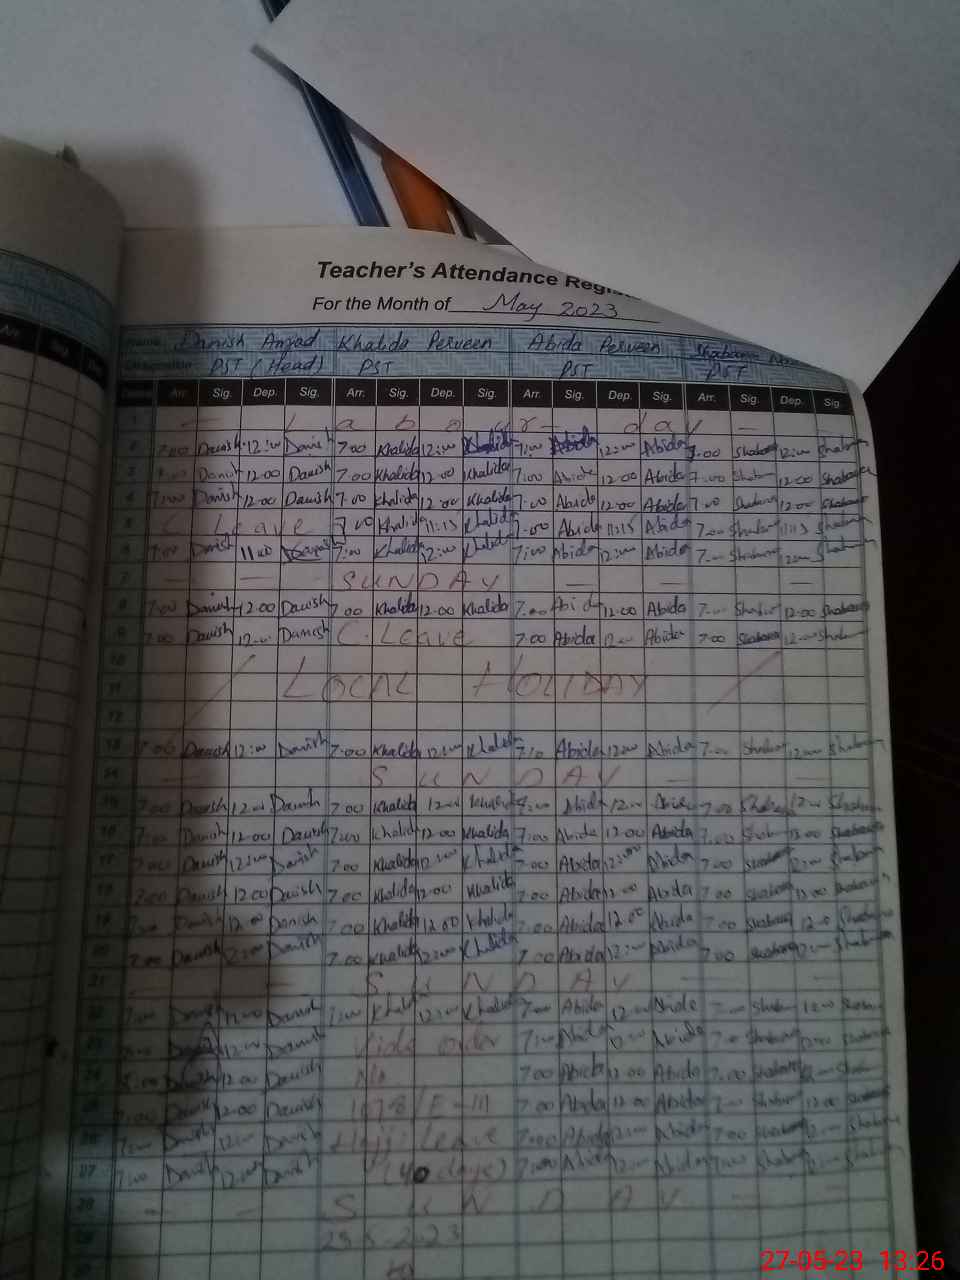 Teacher's Attendance
For the Month of May 2023
Name Danish Amjad Khalida Perveen Abida Perveen Shabana
Designation PST (Head) PST PST PST
Dates Arr. Sig. Dep. Sig. Arr. Sig. Dep. Sig. Arr. Sig. Dep. Sig. Arr. Sig. Dep. Sig.
1 — Labour — day —
2 7:00 Danish 12:00 Danish 7:00 Khalida 12:00 Khalida 7:00 Abida 12:00 Abida 7:00 Shabana 12:00 Shabana
3 7:00 Danish 12:00 Danish 7:00 Khalida 12:00 Khalida 7:00 Abida 12:00 Abida 7:00 Shabana 12:00 Shabana
4 7:00 Danish 12:00 Danish 7:00 Khalida 12:00 Khalida 7:00 Abida 12:00 Abida 7:00 Shabana 12:00 Shabana
5 C. Leave 7:00 Khalida 11:15 Khalida 7:00 Abida 11:15 Abida 7:00 Shabana 11:15 Shabana
6 7:00 Danish 11:00 Danish 7:00 Khalida 12:00 Khalida 7:00 Abida 12:00 Abida 7:00 Shabana 12:00 Shabana
7 — — SUNDAY — — — —
8 7:00 Danish 12:00 Danish 7:00 Khalida 12:00 Khalida 7:00 Abida 12:00 Abida 7:00 Shabana 12:00 Shabana
9 7:00 Danish 12:00 Danish C. Leave 7:00 Abida 12:00 Abida 7:00 Shabana 12:00 Shabana
10
11 LOCAL HOLIDAY
12
13 Danish 12:00 Danish 7:00 Khalida 12:00 Khalida Abida 12:00 Abida 7:00 Shabana 12:00 Shabana
14 — SUNDAY — —
15 7:00 Danish 12:00 Danish 7:00 Khalida 12:00 7:00 Abida 12:00 Abida 7:00 Shabana 12:00 Shabana
16 7:00 Danish 12:00 Danish 7:00 Khalida 12:00 Khalida 7:00 Abida 12:00 Abida 7:00 Shabana 12:00 Shabana
17 7:00 Danish 12:00 Danish 7:00 Khalida 12:00 Khalida 7:00 Abida 12:00 Abida 7:00 Shabana 12:00 Shabana
7:00 Danish 12:00 Danish 7:00 Khalida 12:00 Khalida 7:00 Abida 12:00 Abida 7:00 Shabana 12:00 Shabana
7:00 Danish 12:00 Danish 7:00 Khalida 12:00 Khalida 7:00 Abida 12:00 Abida 7:00 Shabana 12:00 Shabana
20 7:00 Danish 12:00 Danish 7:00 Khalida 12:00 Khalida 7:00 Abida 12:00 Abida 7:00 Shabana 12:00 Shabana
21 — — SUNDAY — —
22 7:00 Danish 12:00 Danish 7:00 Khalida 12:00 Khalida 7:00 Abida 12:00 Abida 7:00 Shabana 12:00 Shabana
23 7:00 12:00 Danish Vide order 7:00 Abida 12:00 Abida 7:00 Shabana 12:00 Shabana
24 Danish 12:00 Danish No 7:00 Abida 12:00 Abida 7:00 Shabana 12:00 Shabana
25 7:00 Danish 12:00 Danish 1078/E-III 7:00 Abida 12:00 Abida 7:00 Shabana 12:00 Shabana
26 7:00 Danish 12:00 Danish Hajj Leave 7:00 Abida 12:00 Abida 7:00 Shabana 12:00 Shabana
27 7:00 Danish 12:00 Danish (40 days) 7:00 Abida 12:00 Abida 7:00 Shabana 12:00 Shabana
28 — — SUNDAY — —
29
27-05-23 13:26